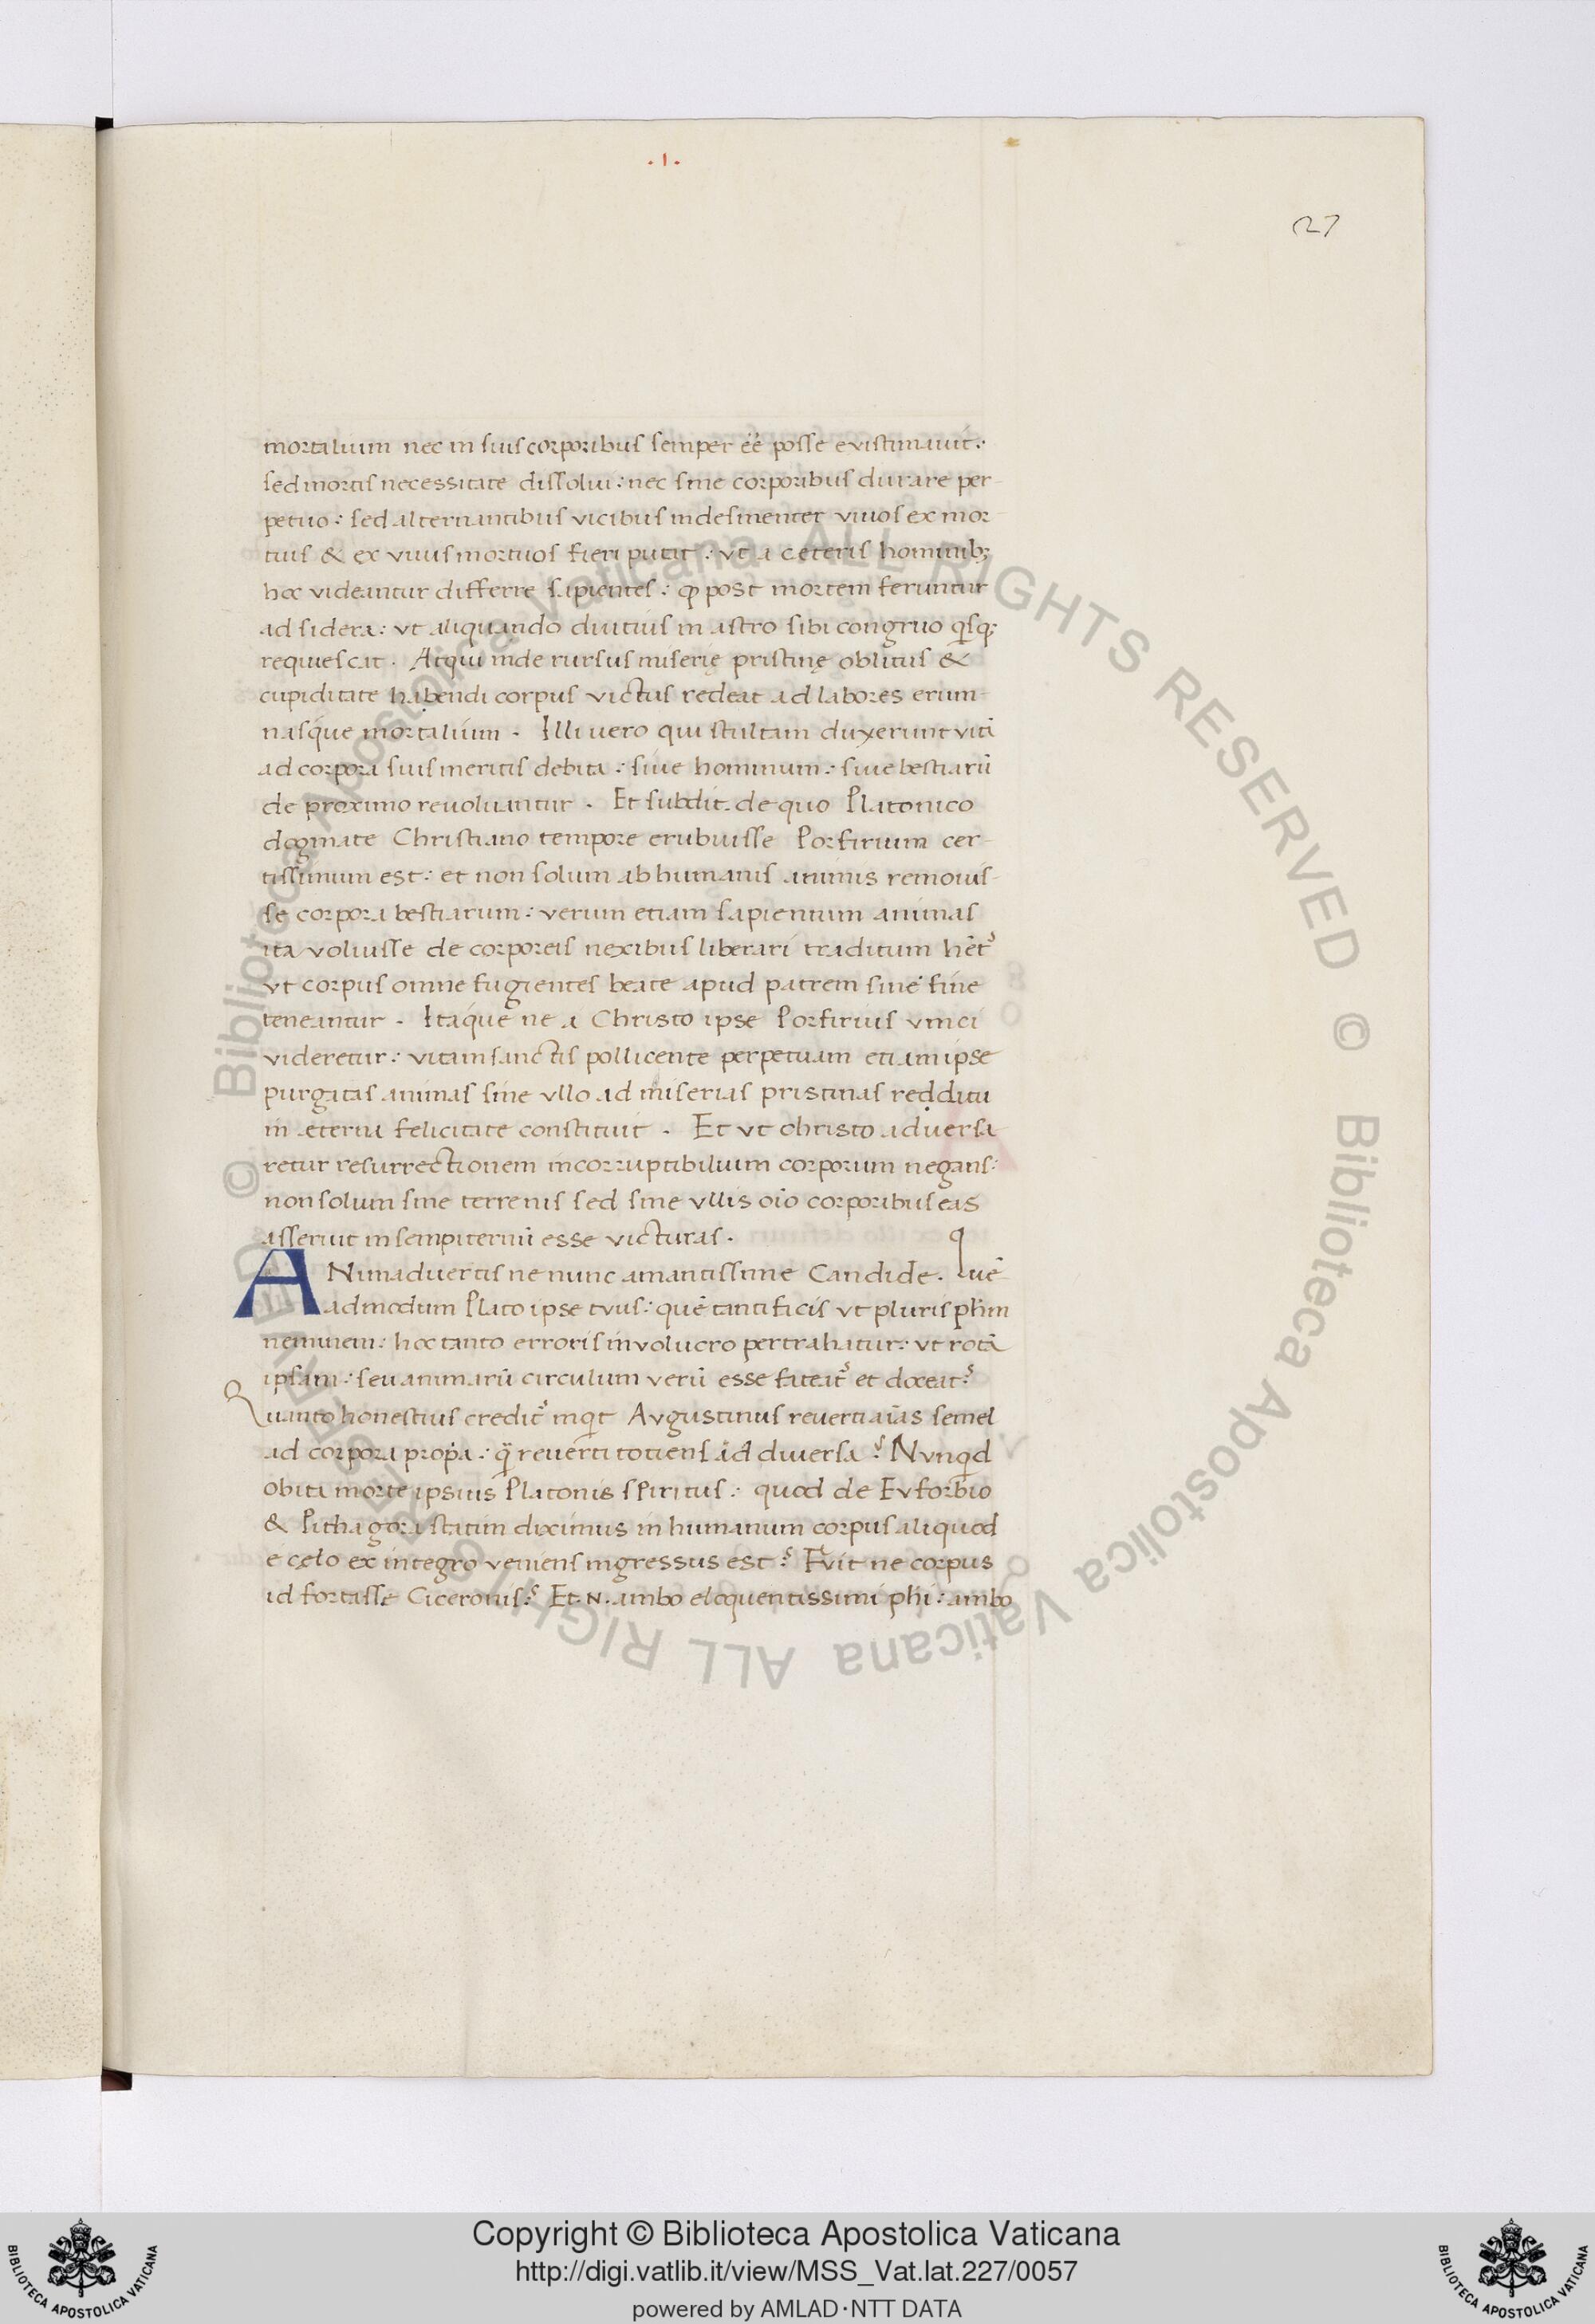 .I.
27
mortalium nec in suis corporibus semper eē posse existimauit:
sed mortis necessitate dissolui: nec sine corporibus durare per-
petuo: sed alternantibus vicibus indesinenter viuos ex mor
tuis & ex viuis mortuos fieri putat: vt a ceteris hominib;
hoc videantur differre sapientes: ꝙ post mortem feruntur
ad sidera: vt aliquando diutius in astro sibi congruo qͥsq;
requiescat. Atqui inde rursus miserię pristinę oblitus &
cupiditate habendi corpus victus redeat ad labores erum-
nasque mortalium. Illi uero qui stultam duxerunt vitā
ad corpora suis meritis debita: siue hominum: siue bestiarū
de proximo reuoluantur. Et subdit. de quo Platonico
dogmate Christiano tempore erubuisse Porfirium cer-
tissimum est: et non solum ab humanis animis remouis-
se corpora bestiarum: verum etiam sapientum animas
ita voluisse de corporeis nexibus liberari traditum hēt᷒
vt corpus omne fugientes beate apud patrem sine fine
teneantur. Itaque ne a Christo ipse Porfirius vinci
videretur: vitam sanctis pollicente perpetuam etiam ipse
purgatas animas sine vllo ad miserias pristinas redditu
in eterna felicitate constituit. Et vt christo aduersa
retur resurrectionem incorruptibilium corporum negans:
non solum sine terrenis sed sine vllis oīo corporibus eas
asseruit in sempiternū esse victuras.
ANimaduertis ne nunc amantissime Candide. Quē
admodum Plato ipse tvus: quē tanti facis vt pluris phm
neminem: hoc tanto erroris involucro pertrahatur: vt rotā
ipsam: seu animarū circulum verū esse fateat᷒ et doceat᷒
Quanto honestius credit᷒ inqͥt Avgustinus reuerti aīas semel
ad corpora propͥa: qͣ̄ reuerti totiens ad diuersa? Nvnqͥd
obita morte ipsius Platonis spiritus: quod de Evforbio
& Pithagora statim diximus in humanum corpus aliquod
e cęlo ex integro veniens ingressus est? Fvit ne corpus
id fortasse Ciceronis? Et.N. ambo eloquentissimi phi: ambo
© Biblioteca Apostolica Vaticana ALL RIGHTS RESERVED © Biblioteca Apostolica Vaticana ALL RIGHTS RESERVED
Copyright © Biblioteca Apostolica Vaticana
http://digi.vatlib.it/view/MSS_Vat.lat.227/0057
powered by AMLAD·NTT DATA
BIBLIOTECA APOSTOLICA VATICANA
BIBLIOTECA APOSTOLICA VATICANA